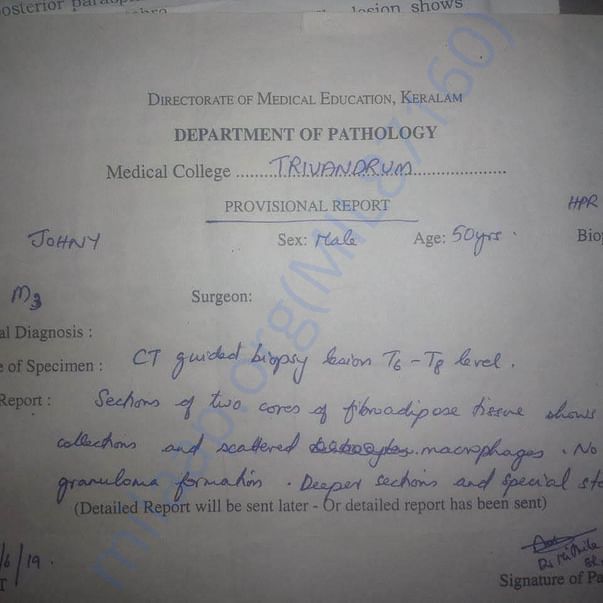 osterior parasp
lesion shows
DIRECTORATE OF MEDICAL EDUCATION, KERALAM
DEPARTMENT OF PATHOLOGY
Medical College ......TRIVANDRUM......
PROVISIONAL REPORT
HPR
JOHNY Sex: Male Age: 50yrs. Bio
M3 Surgeon:
al Diagnosis :
e of Specimen : CT guided biopsy lesion T6 - T8 level.
Report : Sections of two cores of fibroadipose tissue shows
collections and scattered macrophages. No
granuloma formation. Deeper sections and special sta
(Detailed Report will be sent later - Or detailed report has been sent)
/6/19.
T
Signature of Pa
milaap.org(MILA87160)